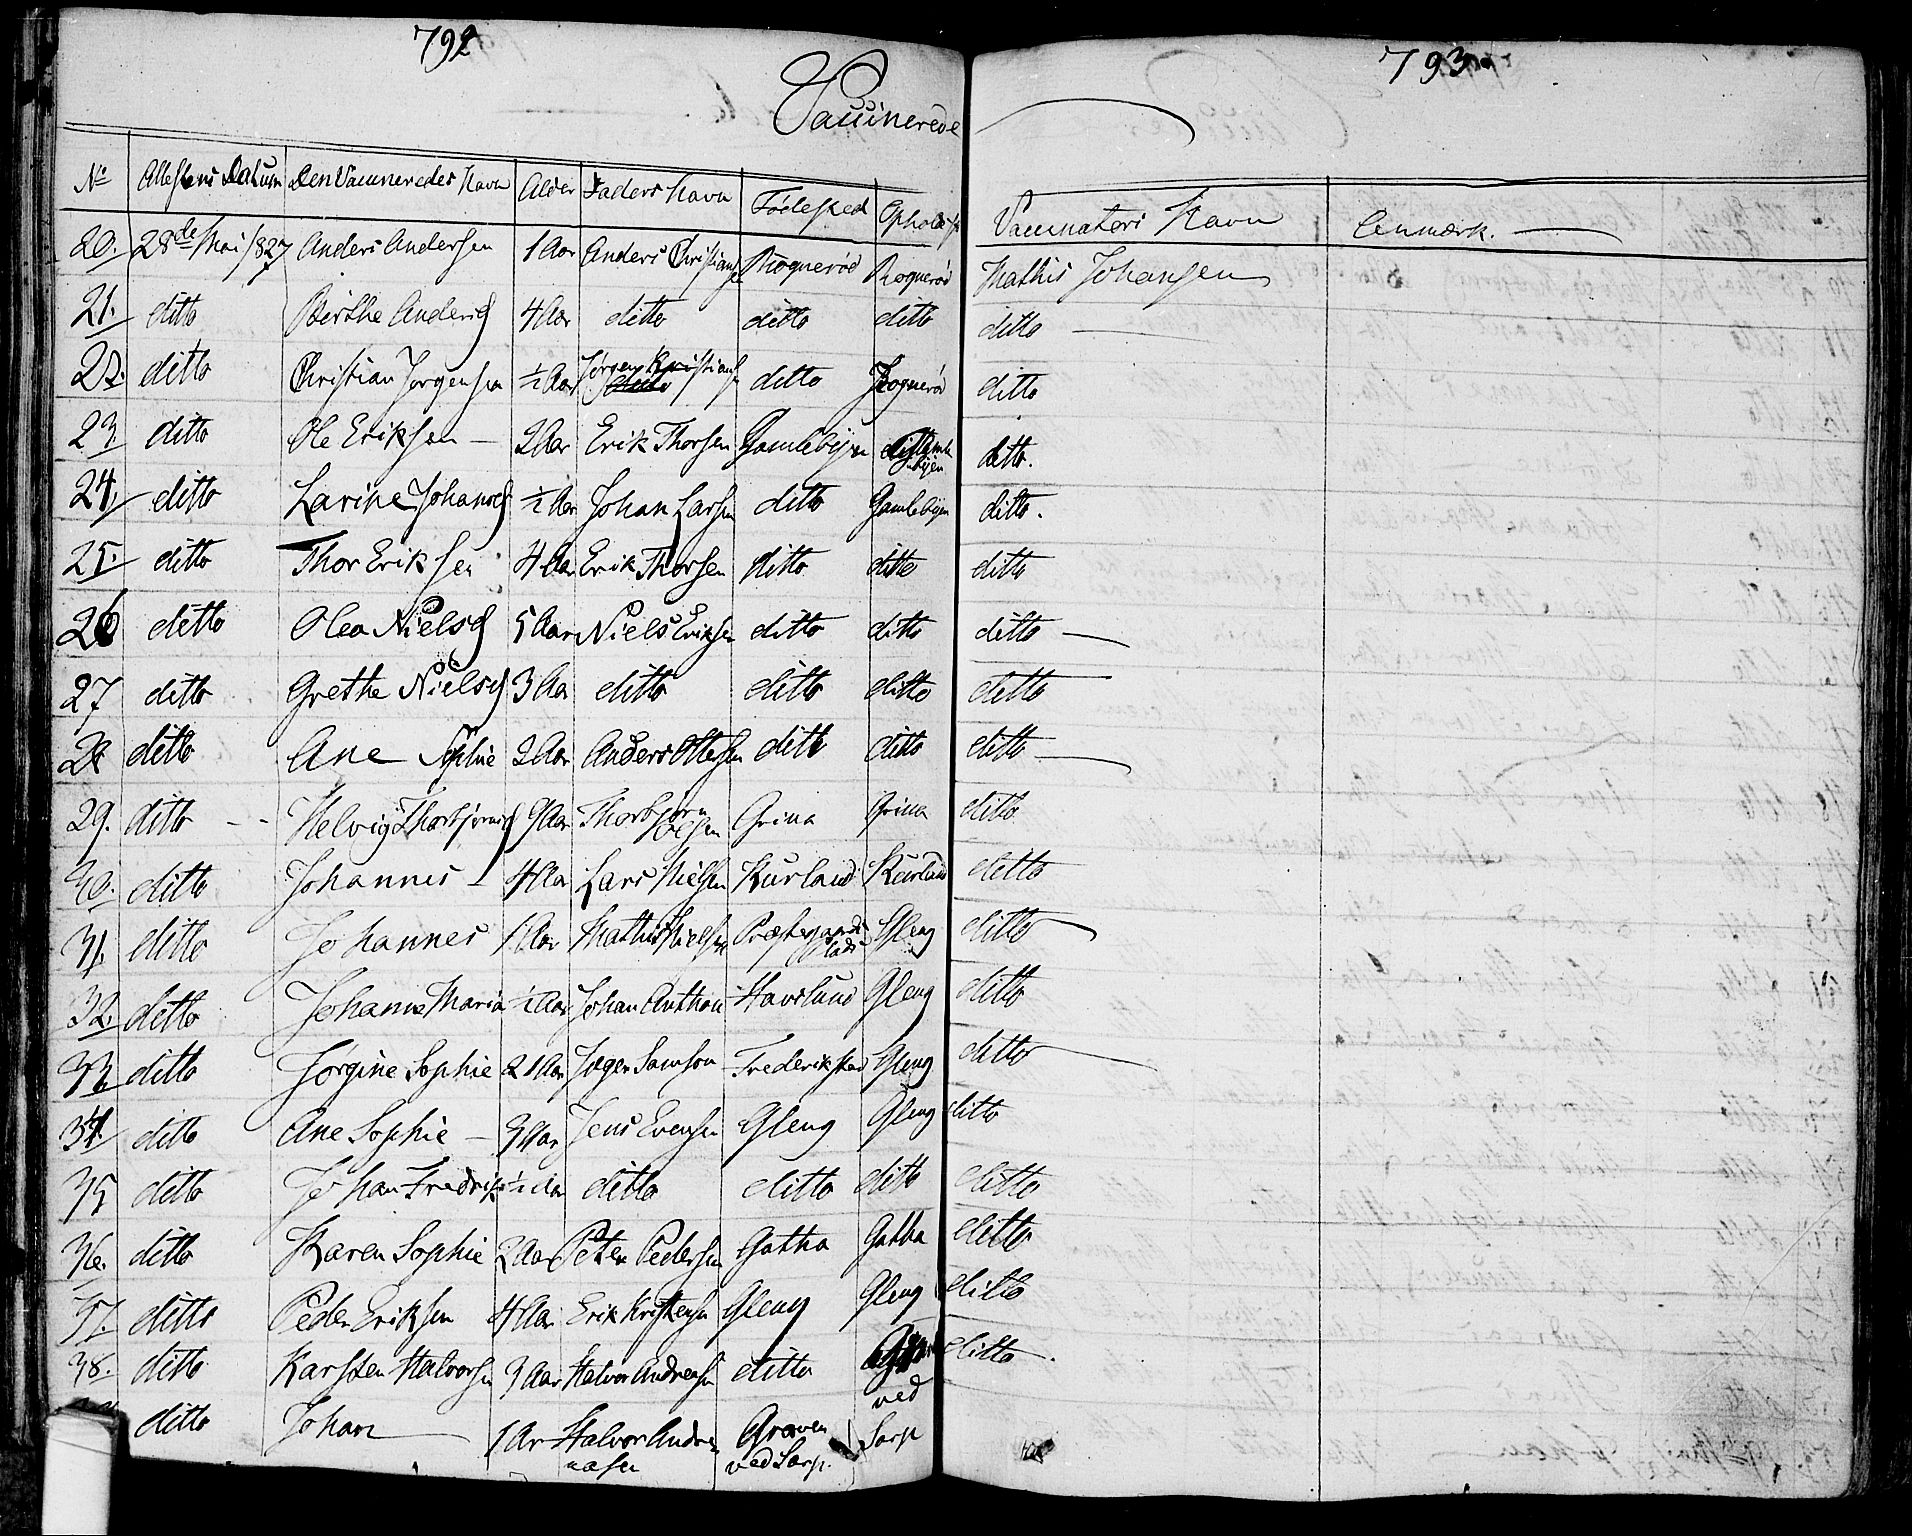 792
793
Vaccinerede
No Attestens Datum Den Vaccineredes Navn Alder Faders Navn Fødested Opholdsst Vaccinateurs Navn Anmærk.
20. 28de Mai 1827 Anders Andersen 1 Aar Anders Christiansen Rognerød Rognerød Mathis Johansen
21. ditto Birthe Andersd 4 Aar ditto ditto ditto ditto
22. ditto Christian Jørgensen ½ Aar Jørgen Kristians ditto Rognerød ditto
23 ditto Ole Eriksen 2 Aar Erik Thorsen Gamlebyen Gamlebyen ditto.
24. ditto Larine Johansd ½ Aar Johan Larsen ditto Gamlebyen ditto.
25. ditto Thor Eriksen 4 Aar Erik Thorsen ditto ditto ditto
26 ditto Olea Nielsd 5 Aar Niels Eriksen ditto ditto ditto
27 ditto Grethe Nielsd 3 Aar ditto ditto ditto ditto
28 ditto Ane Sophie 2 Aar Anders Ottesen ditto ditto ditto
29. ditto Helvig Thorbjørnsd 9 Aar Thorbjørn Olsen Grina Grina ditto
30. ditto Johannes 4 Aar Lars Nielsen Kurland Kurland ditto
31. ditto Johannes 1 Aar Mathis Nielsen Præstegaards Plads Gleng ditto
32. ditto Johanne Maria ½ Aar Johan Anthon Havslund Gleng ditto
33. ditto Jørgine Sophie 2 Aar Jøger Samson Frederikstad Gleng ditto
34. ditto Ane Sophie 3 Aar Jens Evensen Gleng Gleng ditto
35 ditto Johan Fredrik ½ Aar ditto ditto ditto ditto
36. ditto Karen Sophie 2 Aar Peter Pedersen Gatha Gatha ditto
37. ditto Peder Eriksen 4 Aar Erik Kristensen Gleng Gleng ditto
38. ditto Karsten Halvorsen 3 Aar Halvor Andreasen ditto ditto.
ditto Johan 1 Ar Halvor Andreasen Graven ved Sarp. ved Sarp